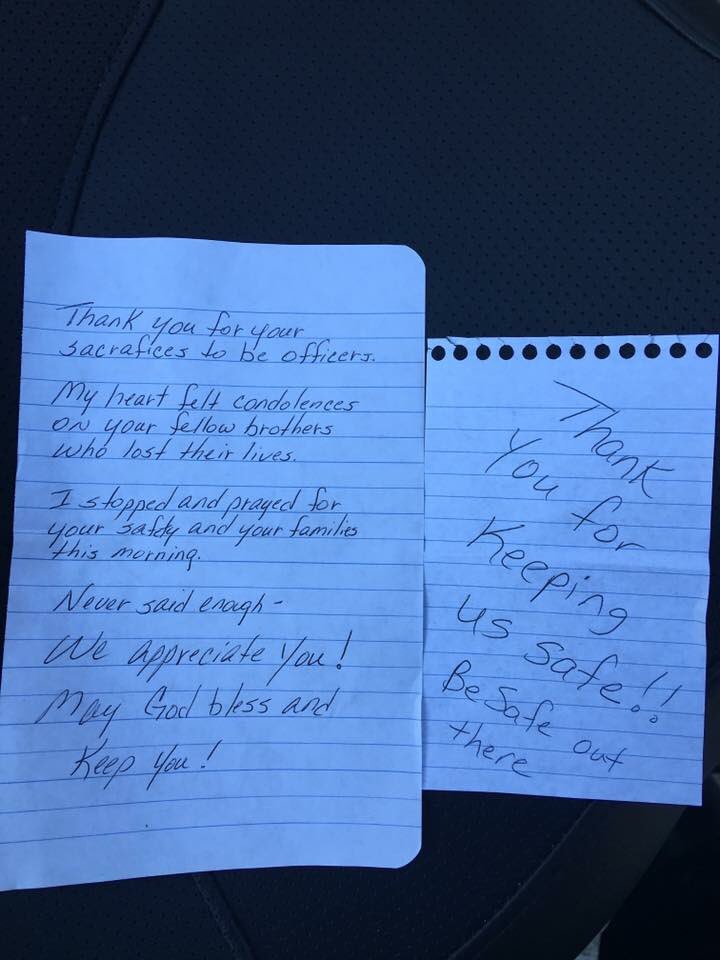 Thank you for your
sacrafices to be officers.
My heart felt condolences
on your fellow brothers
who lost their lives.
I stopped and prayed for
your safety and your families
this morning.
Never said enough -
We appreciate You!
May God bless and
Keep You!
Thank
You for
Keeping
us safe!!
Be Safe out
there